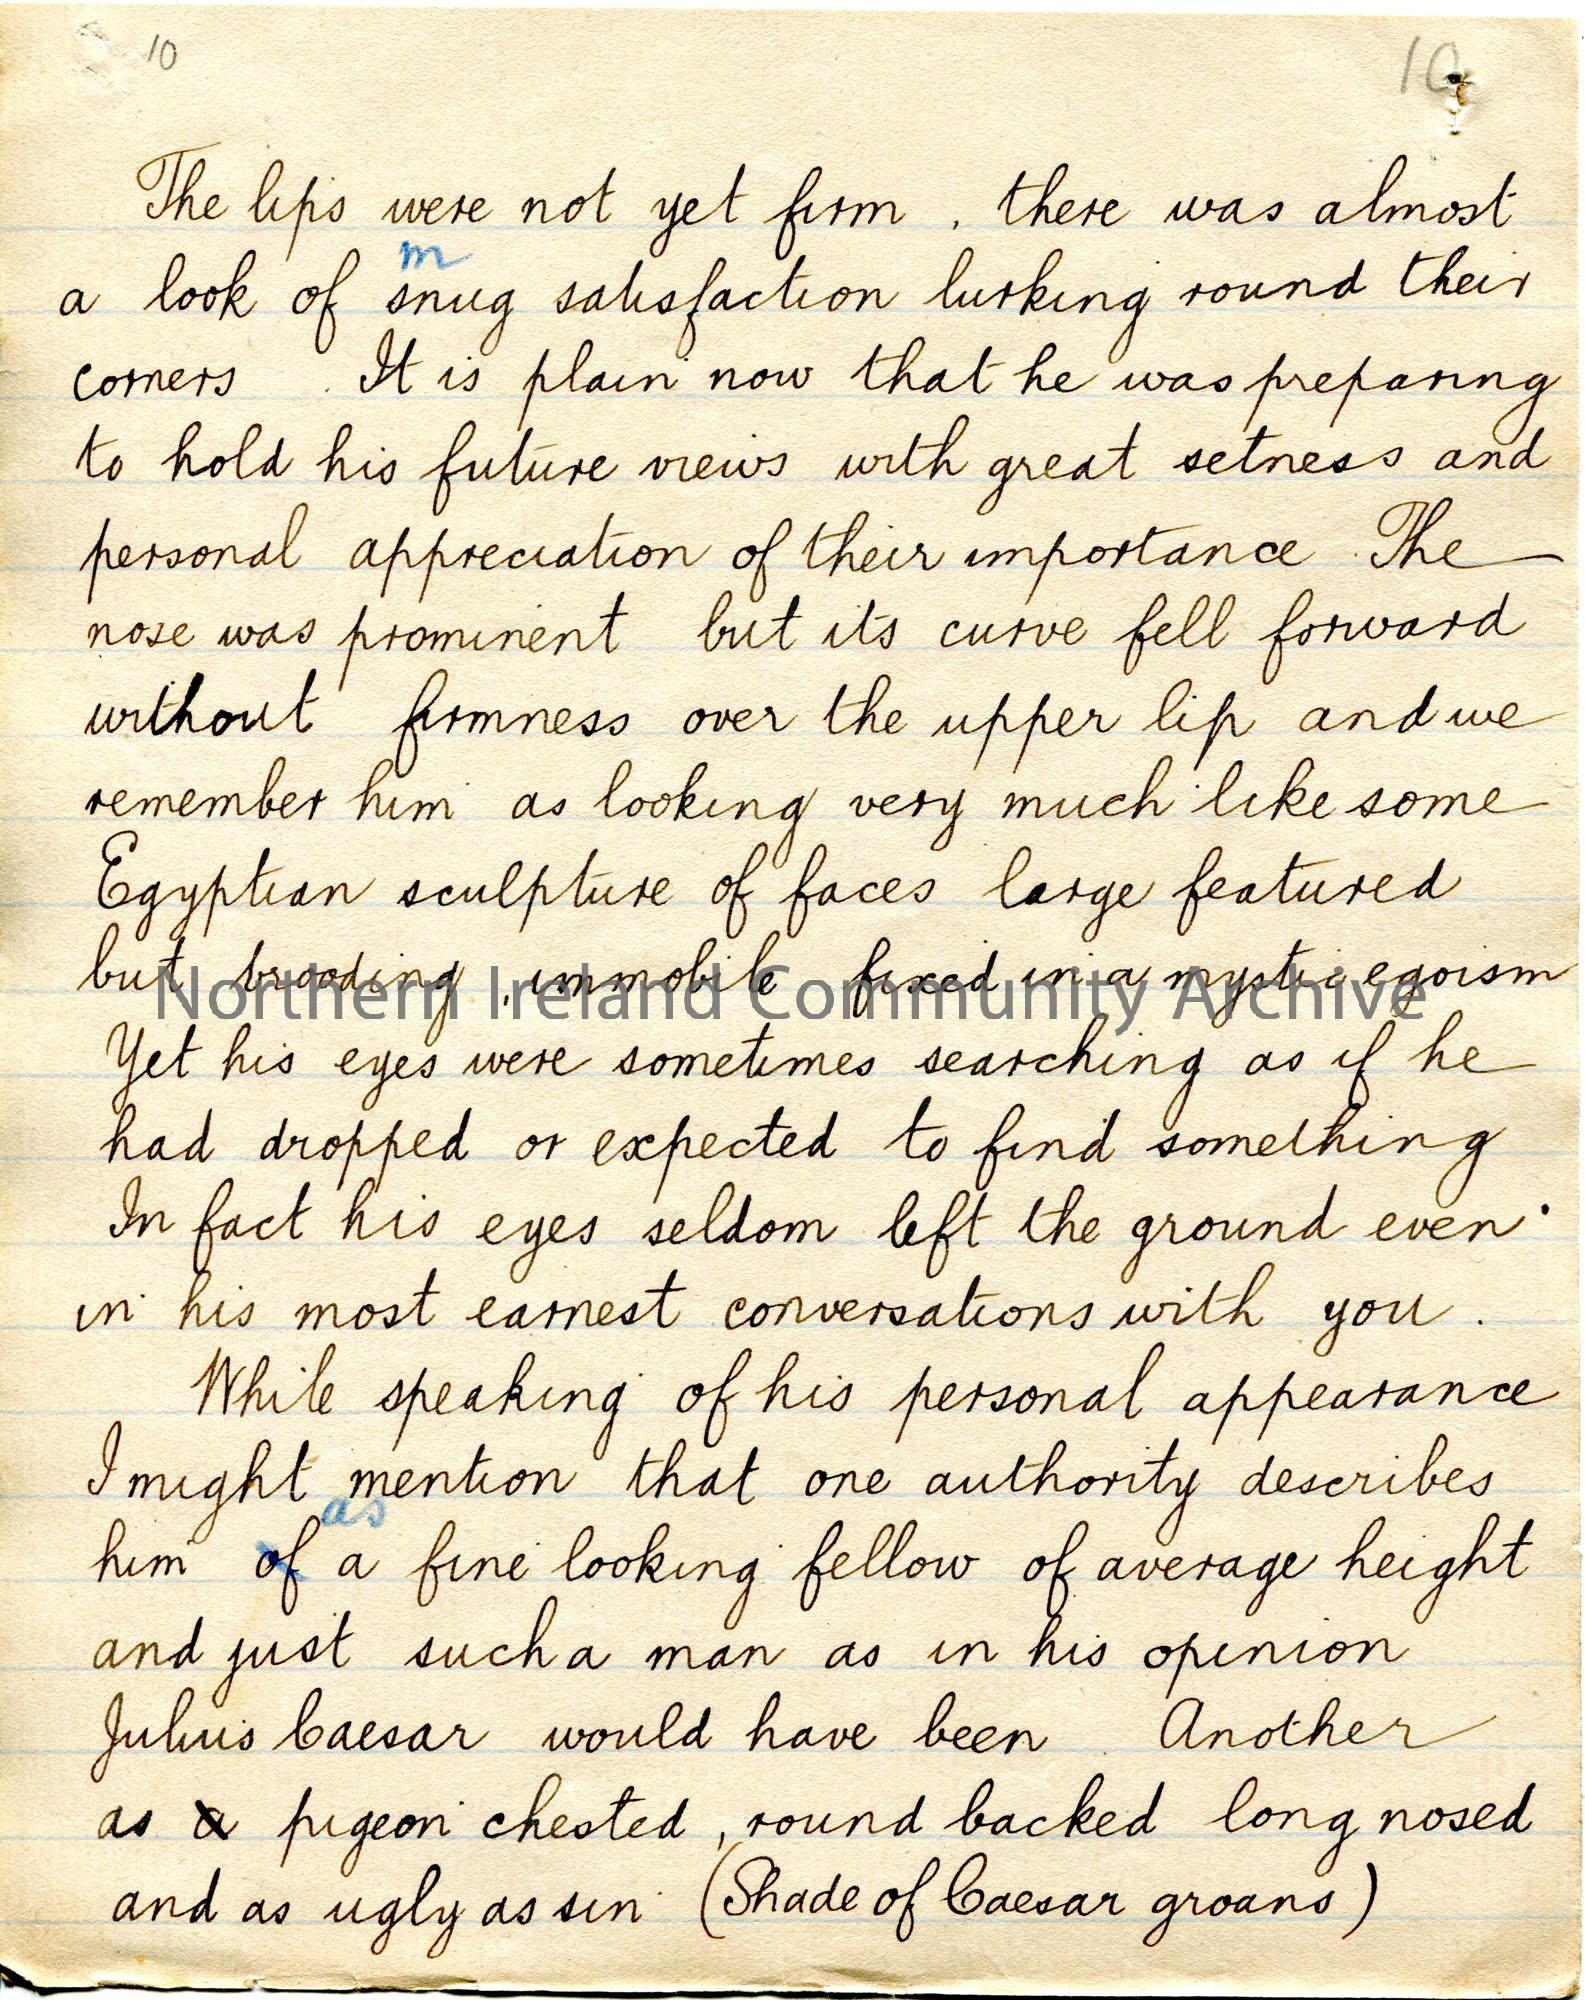 10
10
The lips were not yet firm , there was almost
m
a look of snug satisfaction lurking round their
corners . It is plain now that he was preparing
to hold his future views with great setness and
personal appreciation of their importance . The
nose was prominent but its curve fell forward
without firmness over the upper lip and we
remember him as looking very much like some
Egyptian sculpture of faces large featured
but brooding , immobile fixed in a mystic egoism
Northern Ireland Community Archive
Yet his eyes were sometimes searching as if he
had dropped or expected to find something
In fact his eyes seldom left the ground even
in his most earnest conversations with you .
While speaking of his personal appearance
I might mention that one authority describes
as
him of a fine looking fellow of average height
and just such a man as in his opinion
Julius Caesar would have been . Another
as a pigeon chested , round backed long nosed
and as ugly as sin (Shade of Caesar groans)